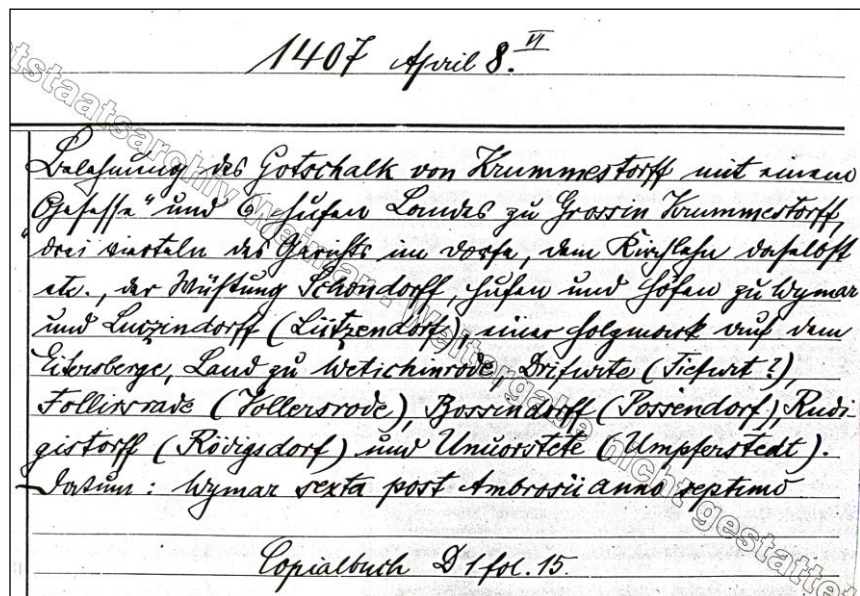 1407 April 8. VI
Belehnung des Gotschalk von Krummestorff mit einem
„Gesesse“ und 6 Hufen Landes zu Grossin Krummestorff,
drei vierteln des Gerichts im Dorfe, dem Kirchlehn daselbst
etc., der Wüstung Schondorff, Hufen und Höfen zu Wymar
und Luzzindorff (Lützendorf), einer Holzmark auf dem
Eitersberge, Land zu Wetichinrode, Drifurte (Tiefurt?),
Follissrade (Vollersrode), Bossindorff (Possendorf), Rudi-
gistorff (Rödigsdorf) und Umorstete (Umpferstedt).
Datum: Wymar sexta post Ambrosii anno septimo
Copialbuch D 1 fol. 15.
Staatsarchiv Weimar - Weitergabe nicht gestattet